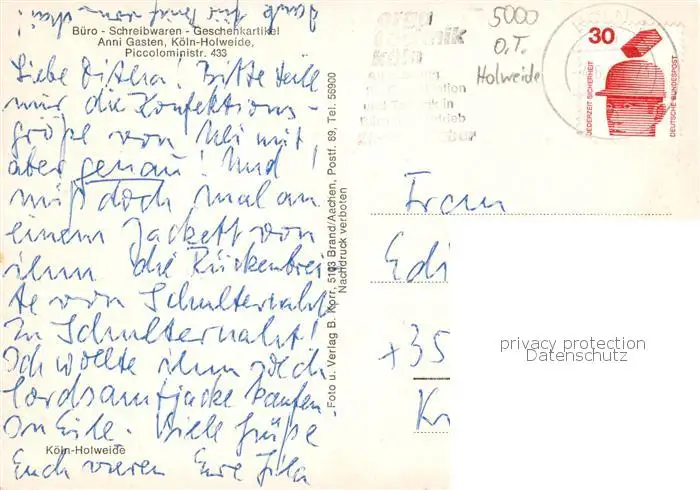 Danke für Brief vom
Büro - Schreibwaren - Geschenkartikel
Anni Gasten, Köln-Holweide,
Piccoloministr. 433
Liebe Bitte teile
mir die Konfektions-
größe von Uli mit,
aber genau! Und
miß doch mal an
einem Jackett von
ihm die Rückenbrei
te von Schulternaht
zu Schulternaht!
Ich wollte ihm solch
Cordsamtjacke kaufen.
In Eile. Viele Grüße
Euch vieren Eure
Köln-Holweide
Foto u. Verlag B. Korr, 5103 Brand/Aachen, Postf. 89, Tel. 56900
Nachdruck verboten
orga
technik
köln
5000
O.T.
Holweide
30
JEDERZEIT SICHERHEIT
DEUTSCHE BUNDESPOST
Frau
Edi
+35
K
privacy protection
Datenschutz